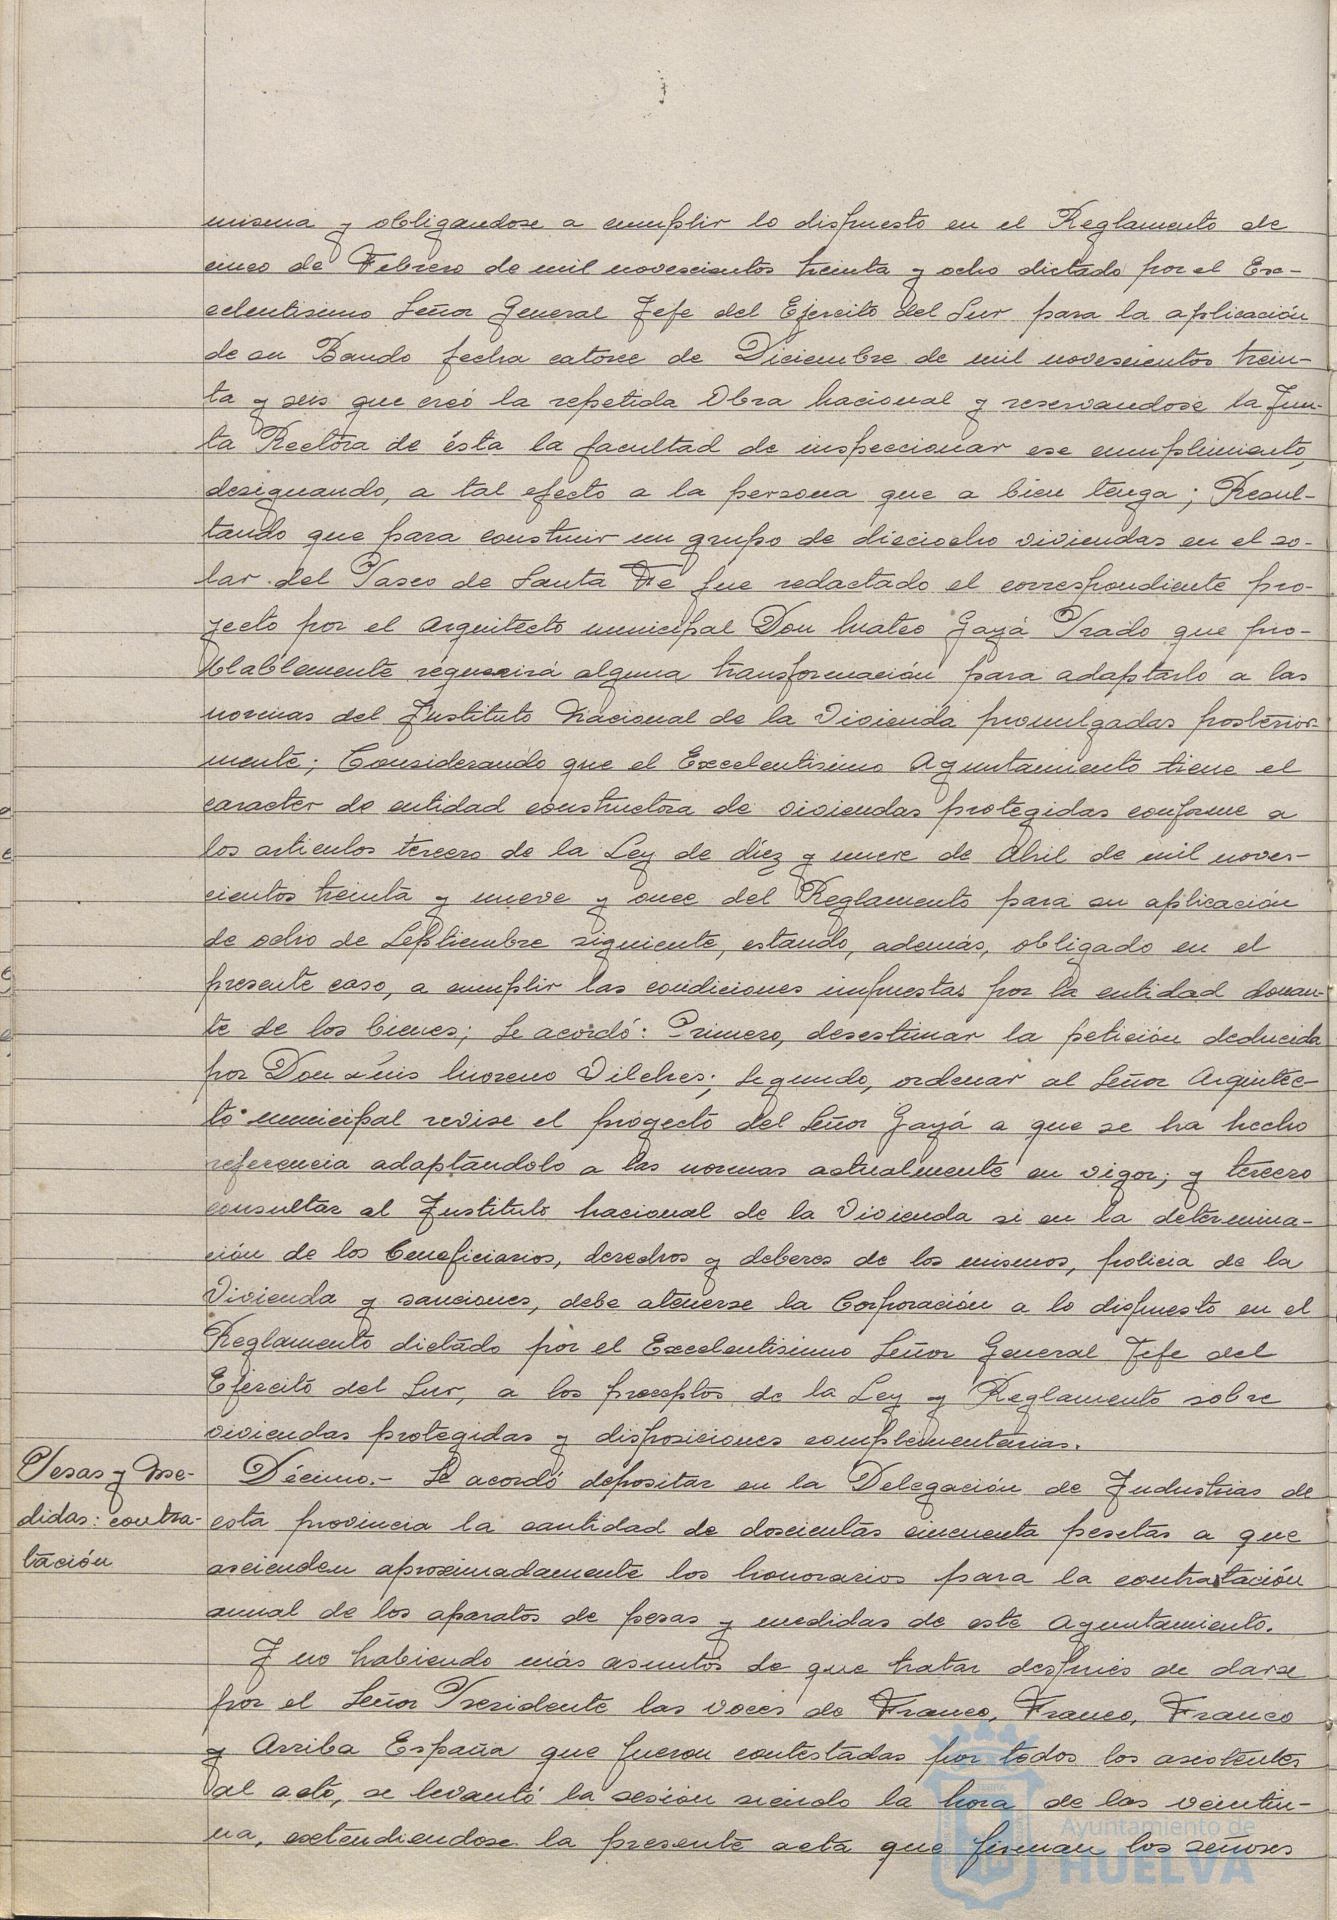 misma y obligandose a cumplir lo dispuesto en el Reglamento de
cinco de Febrero de mil novescientos treinta y ocho dictado por el Ex-
celentisimo Señor General Jefe del Ejercito del Sur para la aplicación
de su Bando fecha catorce de Diciembre de mil novescientos trein-
ta y seis que creó la repetida Obra nacional y reservandose la Jun-
ta Rectora de ésta la facultad de inspeccionar ese cumplimiento,
designando, a tal efecto a la persona que a bien tenga; Resul-
tando que para construir un grupo de dieciocho viviendas en el so-
lar del Paseo de Santa Fé fue redactado el correspondiente pro-
yecto por el Arquitecto municipal Don Mateo Gayá Prado que pro-
blablemente requerirá alguna transformación para adaptarlo a las
normas del Instituto Nacional de la Vivienda promulgadas posterior-
mente; Considerando que el Excelentisimo Ayuntamiento tiene el
caracter de entidad constructora de viviendas protegidas conforme a
los articulos tercero de la Ley de diez y nueve de Abril de mil noves-
cientos treinta y nueve y once del Reglamento para su aplicación
de ocho de Septiembre siguiente, estando, además, obligado en el
presente caso, a cumplir las condiciones impuestas por la entidad donan-
te de los bienes; Se acordó: Primero, desestimar la petición deducida
por Don Luis Moreno Vilches; Segundo, ordenar al Señor Arquitec-
to municipal revise el proyecto del Señor Gayá a que se ha hecho
referencia adaptandolo a las normas actualmente en vigor; y tercero
consultar al Instituto Nacional de la Vivienda si en la determina-
ción de los beneficiarios, derechos y deberes de los mismos, policia de la
Vivienda y sanciones, debe atenerse la Corporación a lo dispuesto en el
Reglamento dictado por el Excelentisimo Señor General Jefe del
Ejercito del Sur, a los preceptos de la Ley y Reglamento sobre
viviendas protegidas y disposiciones complementarias.
Pesas y Me-
didas: contra-
tación
Décimo.- Se acordó depositar en la Delegación de Industrias de
esta provincia la cantidad de doscientas cincuenta pesetas a que
ascienden aproximadamente los honorarios para la contratación
anual de los aparatos de pesas y medidas de este Ayuntamiento.
Y no habiendo más asuntos de que tratar después de darse
por el Señor Presidente las voces de Franco, Franco, Franco
y Arriba España que fueron contestadas por todos los asistentes
al acto, se levantó la sesión siendo la hora de las veintiu-
na, extendiendose la presente acta que firman los señores
Ayuntamiento de
HUELVA